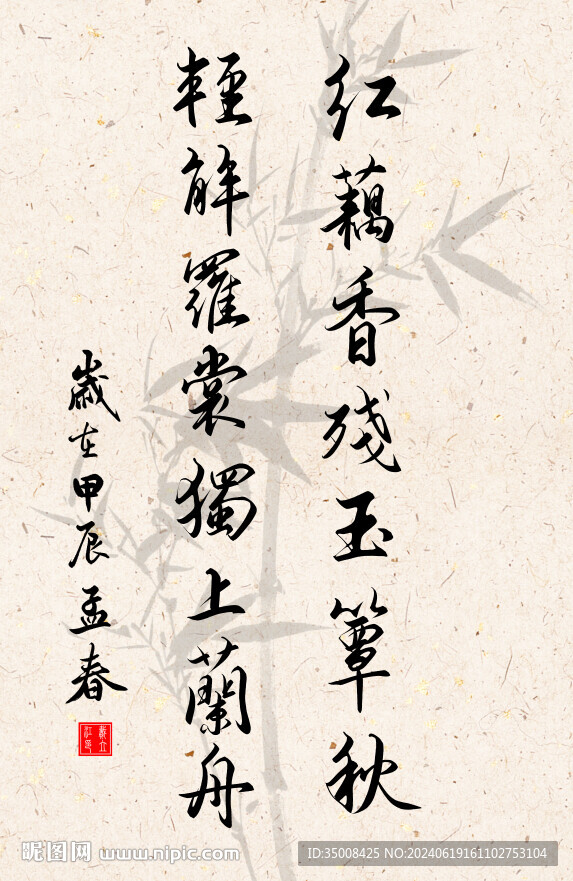 红藕香残玉簟秋
輕解羅裳獨上蘭舟
歲在甲辰孟春
昵图网 www.nipic.com
ID:35008425 NO:20240619161102753104